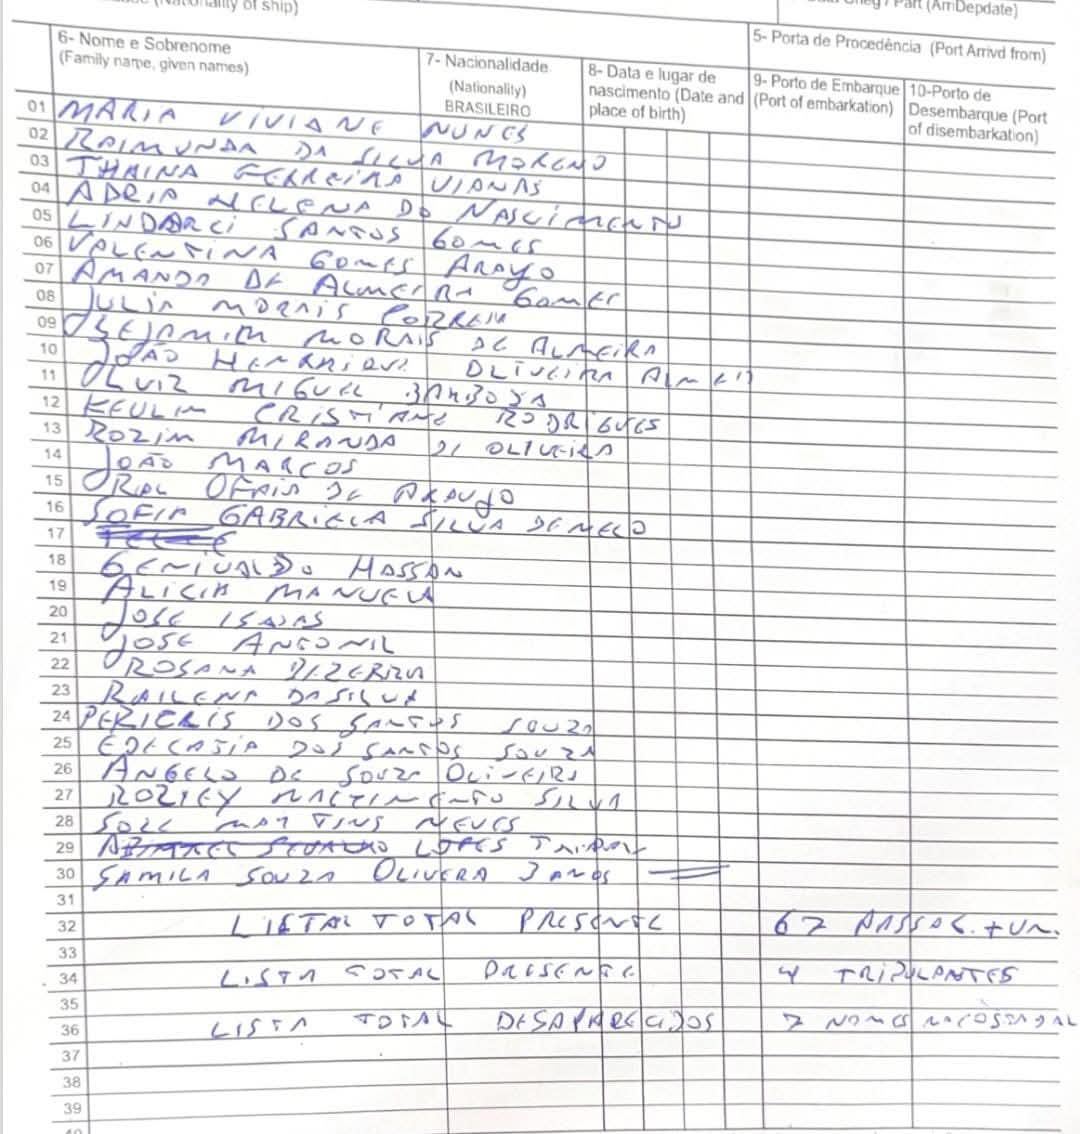 (Nationality of ship)
Part (ArrDepdate)
5- Porta de Procedência (Port Arrivd from)
6- Nome e Sobrenome
(Family name, given names)
7- Nacionalidade
(Nationality)
BRASILEIRO
8- Data e lugar de
nascimento (Date and
place of birth)
9- Porto de Embarque
(Port of embarkation)
10-Porto de
Desembarque (Port
of disembarkation)
01 MARIA VIVIANE NUNES
02 RAIMUNDA DA SILVA MORENO
03 THAINA FERREIRA VIANAS
04 ADRIA HELENA DO NASCIMENTO
05 LINDARCI SANTOS GOMES
06 VALENTINA GOMES ARAYO
07 AMANDA DE ALMEIRA GOMES
08 JULIA MORAIS CORREIA
09 MORAIS DE ALMEIRA
10 JOÃO HENRRIQUE OLIVEIRA
11 LUIZ MIGUEL BARBOSA
12 KEULIA CRISTIANE RODRIGUES
13 MIRANDA DI OLIVEIRA
14 JOÃO MARCOS
15 DE ARAUJO
16 SOFIA GABRIELA SILVA DE MELO
17
18 GENIVALDO HASSAN
19 ALICIA MANUELA
20 JOSE ISAIAS
21 JOSE ANTONIL
22 ROSANA BEZERRA
23 RAILENA DA SILVA
24 PERICRIS DOS SANTOS SOUZA
25 DOS SANTOS SOUZA
26 ANGELO DE SOUZA OLIVEIRA
27 SILVA
28 MARTINS NEVES
29 LOPES
30 SAMILA SOUZA OLIVERA 3 ANOS
31
32 LISTAL TOTAL PRESENTE 67 PASSAG.
33
34 LISTA TOTAL PRESENTE 4 TRIPULANTES
35
36 LISTA TOTAL DESAPARECIDOS 7 NOMES
37
38
39
40